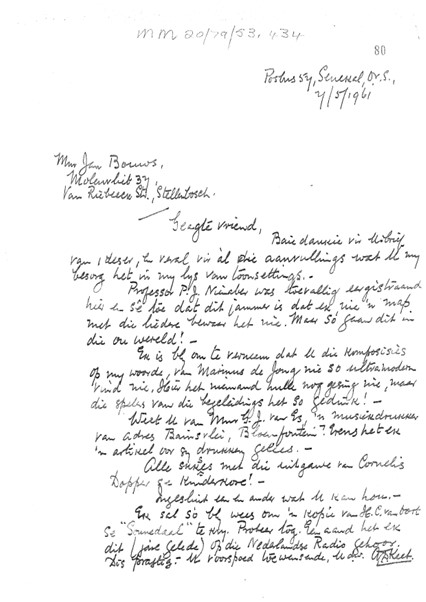 MM 20/79/53. 434
80
Posbus 54, Senekal, O.V.S.,
7/5/1961
Mnr Jan Bouws,
Molenvliet 37,
Van Riebeeck Str., Stellenbosch.
Geagte vriend,
Baie dankie vir U brief
van 1 deser, en veral vir àl die aanvullings wat U my
besorg het in my lys van toonsettings.-
Professor P.J. Nienaber was toevallig eergisteraand
hier en sê toe dat dit jammer is dat ek nie 'n map
met die liedere bewaar het nie. Maar so gaan dit in
die ou wêreld!-
Ek is bly om te verneem dat U die komposisies
op my woorde, van Marinus de Jong nie so ultramodern
vind nie. Hier het niemand hulle nog gesing nie, maar
die spelers van die begeleidings het so gedink!-
Weet U van Mnr G.J. van Es, 'n musiekdrukker
van adres Bainsvlei, Bloemfontein? Erens het ek
'n artikel oor sy drukkery gelees.-
Alle sukses met die uitgawe van Cornelis
Dopper se Kinderkore!-
Ingesluit een en ander wat U kan hou.-
Ek sal so bly wees om 'n kopie van H.C. van Oort
se "Somerdaal" te kry. Probeer tog. Eenaand het ek
dit (jare gelede) op die Nederlandse Radio gehoor.
Dis pragtig!- U voorspoed toewensende, U dw.